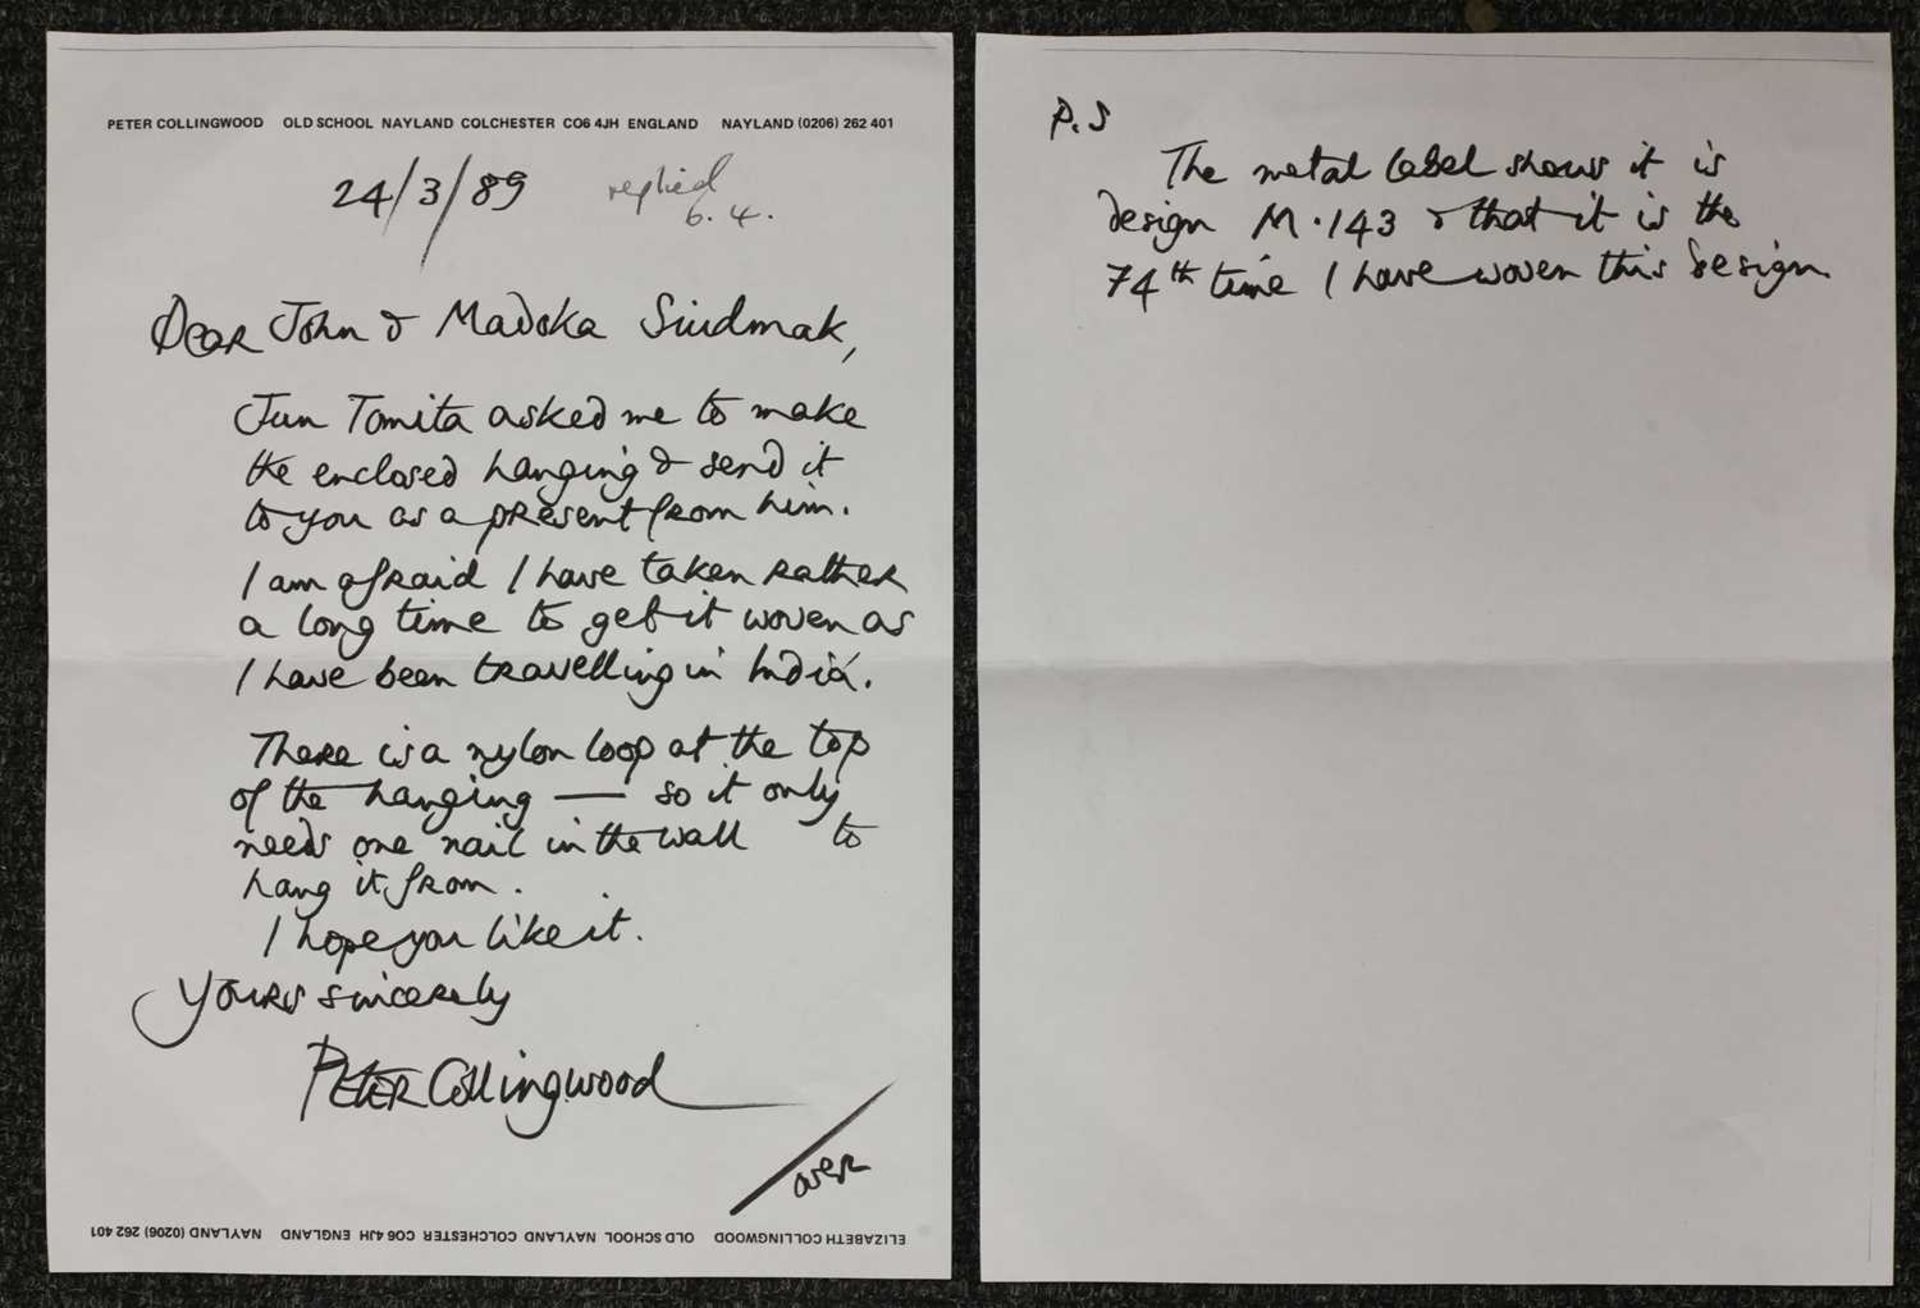 PETER COLLINGWOOD OLD SCHOOL NAYLAND COLCHESTER CO6 4JH ENGLAND NAYLAND (0206) 262 401
24/3/89 replied
6.4.
Dear John & Madoka Siudmak,
Jun Tomita asked me to make
the enclosed hanging & send it
to you as a present from him.
I am afraid I have taken rather
a long time to get it woven as
I have been travelling in India.
There is a nylon loop at the top
of the hanging — so it only
needs one nail in the wall to
hang it from.
I hope you like it.
Yours sincerely
Peter Collingwood
/over
ELIZABETH COLLINGWOOD OLD SCHOOL NAYLAND COLCHESTER CO6 4JH ENGLAND NAYLAND (0206) 262 401
P.S
The metal label shows it is
design M.143 & that it is the
74th time I have woven this design